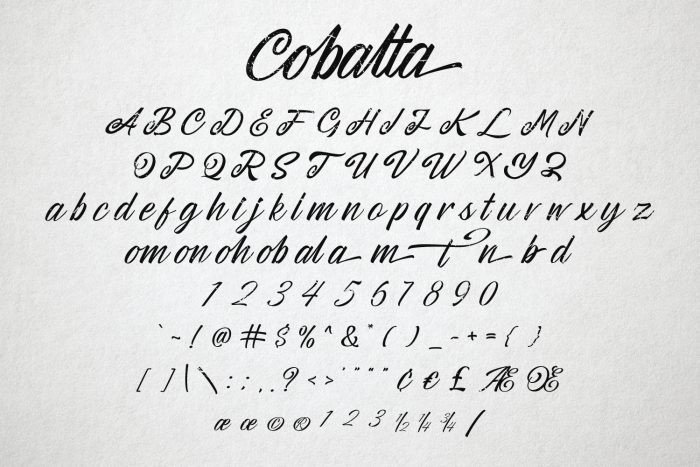 Cobalta
A B C D E F G H I J K L M N
O P Q R S T U V W X Y Z
a b c d e f g h i j k l m n o p q r s t u v w x y z
om on oh ob al a m t n b d
1 2 3 4 5 6 7 8 9 0
` ~ ! @ # $ % ^ & * ( ) _ - + = { }
[ ] | \ : ; , . ? < > ' " “ ” ¢ € £ Æ Œ
æ œ © ® 1 2 3 ½ ¼ ¾ /